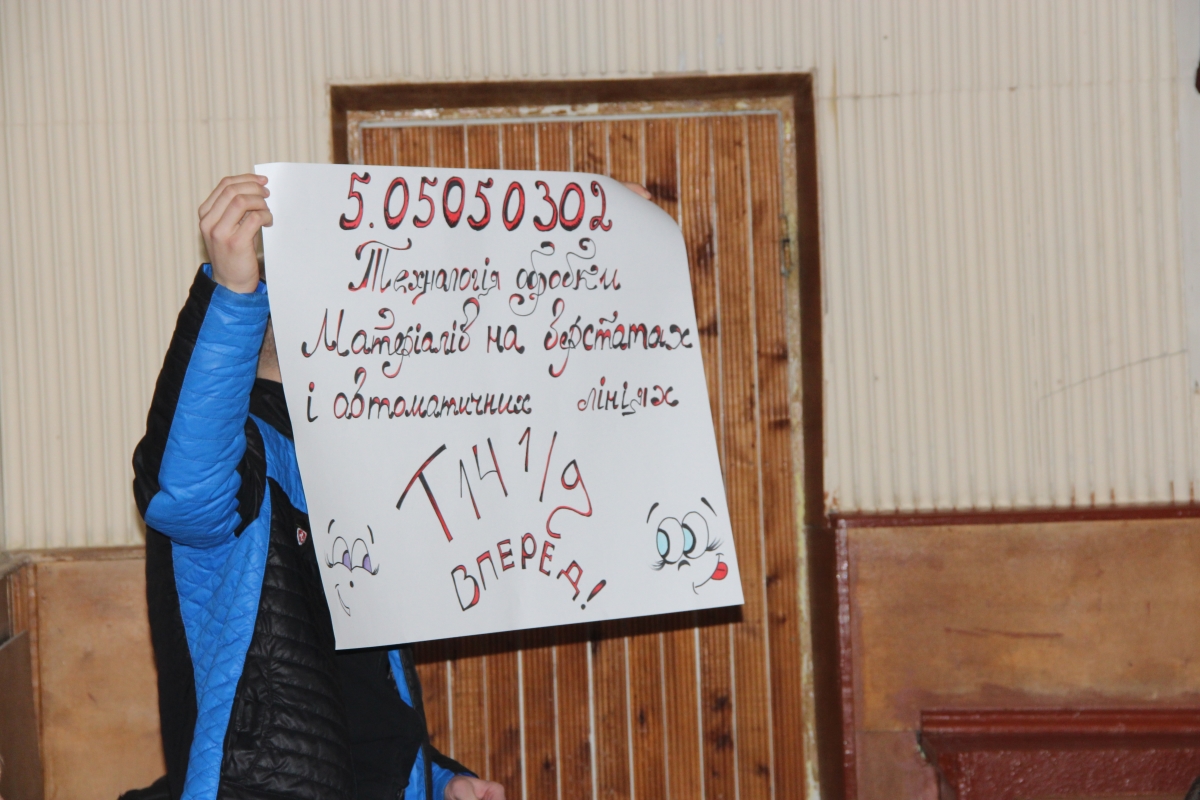 5.05050302
Техналогія обробки
Матеріалів на верстатах
і автоматичних лініях
Т14 1/9
ВПЕРЕД!